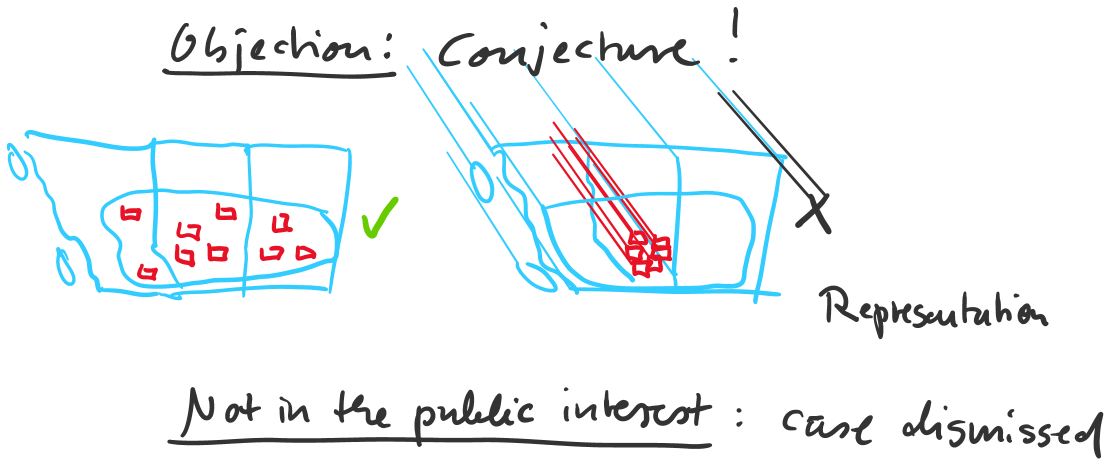 Objection: Conjecture!
Representation
Not in the public interest: case dismissed